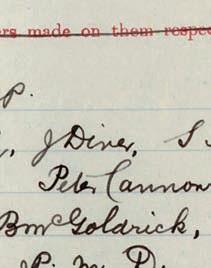 ers made on them respec
P.
J Diver, S
Peter Cannon
B McGoldrick,
P. Mc D